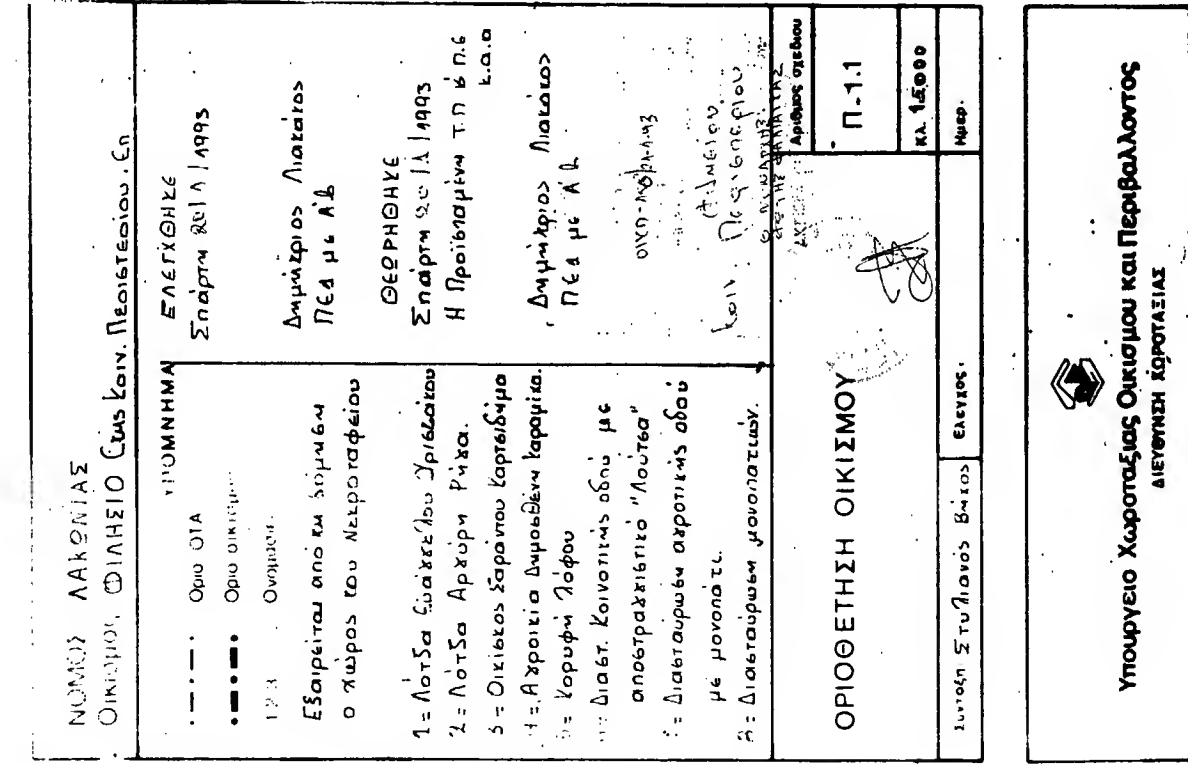 ΝΟΜΟΣ ΛΑΚΩΝΙΑΣ
Οικισμος ΦΙΛΗΣΙΟ της Κοιν. Περιστερίου. Επ
ΥΠΟΜΝΗΜΑ
Οριο ΟΤΑ
Οριο οικισμου
1 2 3 Ονομασια
Εξαιρείται από τη δόμηση
ο χώρος του Νεκροταφείου
1 = Λότζα Ευάγγελου Χριστάκου
2 = Λότζα Αργύρη Ρήγα.
3 = Οικίσκος Σαράντου Καρτσιδήμα
4 = Αγροικία Δημοσθένη Καραμίχα.
5 = Κορυφή λόφου
Διαστ. Κοινοτικής οδού με
αποστραγγιστικό "Λούτσα"
: Διασταυρωση αγροτικής οδού
με μονοπάτι.
8 : Διασταύρωση μονοπατιών.
ΕΛΕΓΧΘΗΚΕ
Σπάρτη 20/1/1993
Δημήτριος Λιακάκος
ΠΕΔ με Α'β
ΘΕΩΡΗΘΗΚΕ
Σπάρτη 20/1/1993
Η Προϊσταμένη Τ.Π & Π.Ε
κ.α.α
Δημήτριος Λιακάκος
ΠΕΔ με Α'β
Κοιν. Περιστερίου
ΟΡΙΟΘΕΤΗΣΗ ΟΙΚΙΣΜΟΥ
Αριθμος σχεδιου
Π-1.1
ΚΛ. 1:5000
Συνταξη Στυλιανός Βήχος
Ελεγχος.
Ημερ.
Υπουργειο Χωροταξιας Οικισμου και Περιβαλλοντος
ΔΙΕΥΘΥΝΣΗ ΧΩΡΟΤΑΞΙΑΣ